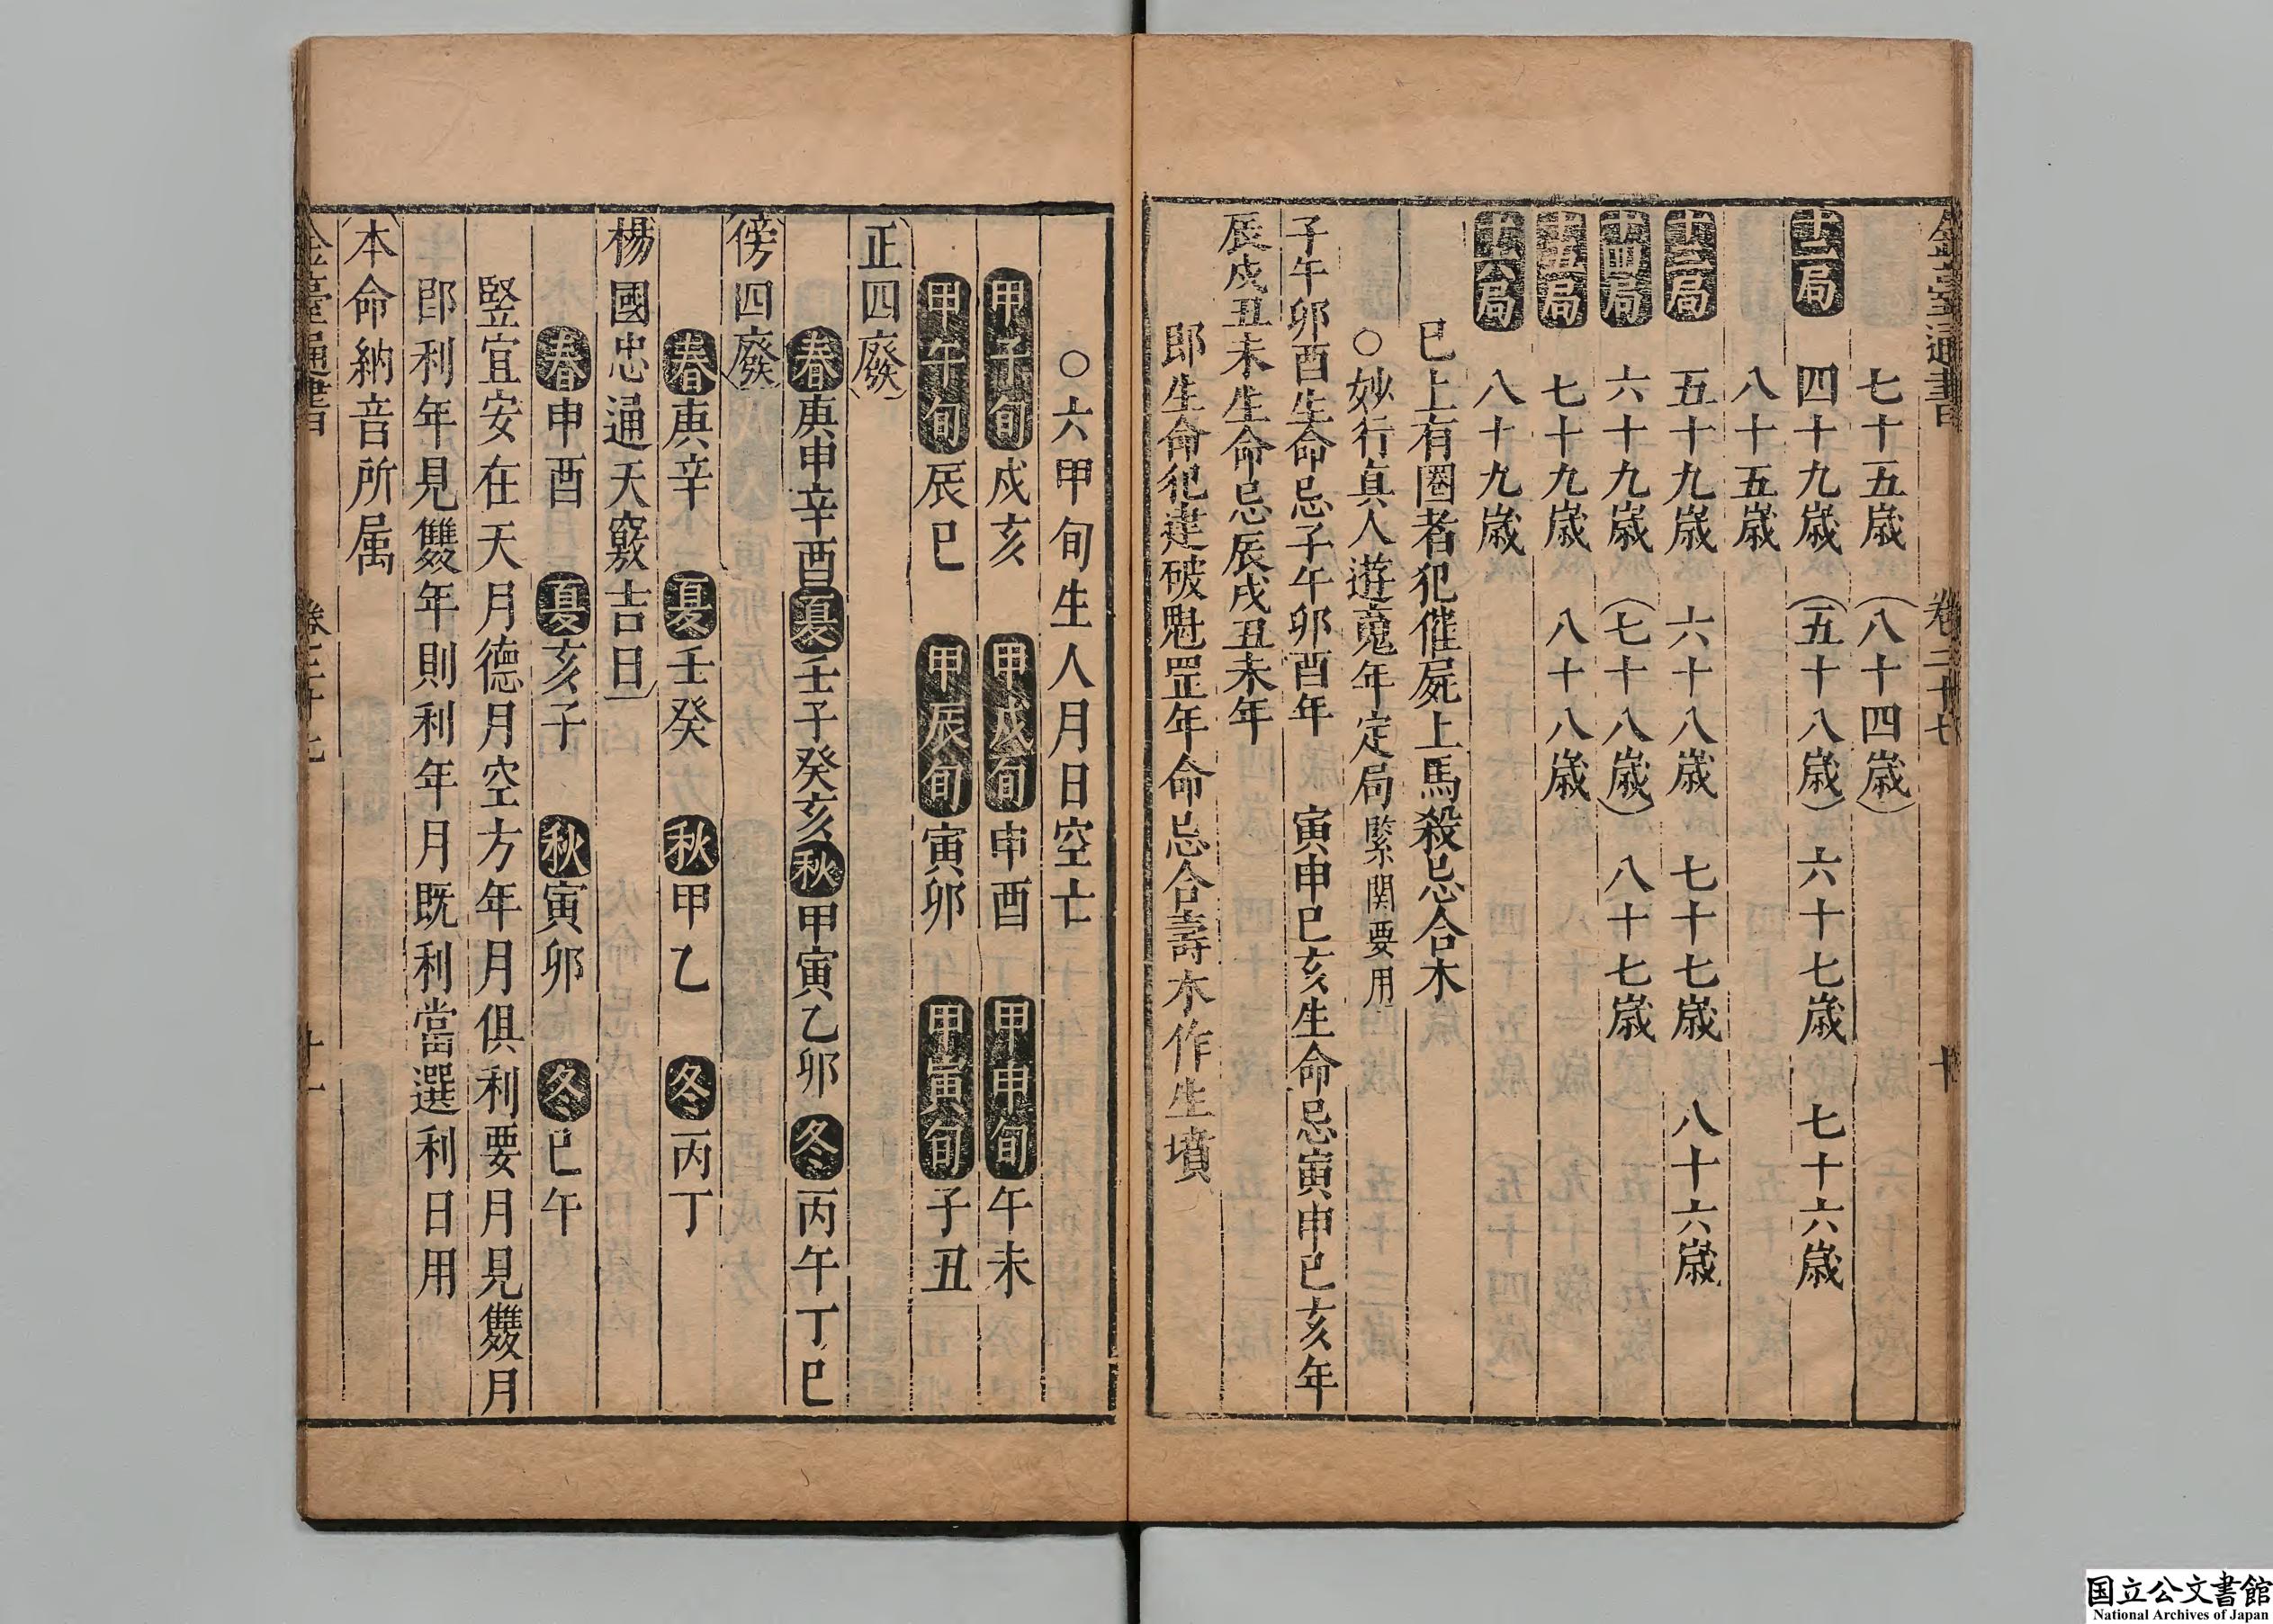 金臺通書 卷二十七 十
七十五歲 (八十四歲)
十二局 四十九歲 (五十八歲) 六十七歲 七十六歲
八十五歲
十三局 五十九歲 六十八歲 七十七歲 八十六歲
十四局 六十九歲 (七十八歲) 八十七歲
十五局 七十九歲 八十八歲
十六局 八十九歲
巳上有圈者犯催屍上馬殺忌合木
○妙行真人遊䰟年定局緊関要用
子午卯酉生命忌子午卯酉年 寅申巳亥生命忌寅申巳亥年
辰戌丑未生命忌辰戌丑未年
即生命犯建破魁罡年命忌合壽木作生墳
○六甲旬生人月日空亡
甲子旬戌亥 甲戌旬申酉 甲申旬午未
甲午旬辰巳 甲辰旬寅卯 甲寅旬子丑
(正四廢)
春庚申辛酉夏壬子癸亥秋甲寅乙卯冬丙午丁巳
(傍四廢)
春庚辛 夏壬癸 秋甲乙 冬丙丁
楊國忠通天竅吉日
春申酉 夏亥子 秋寅卯 冬巳午
竪宜安在天月德月空方年月俱利要月見雙月
即利年見雙年則利年月既利當選利日用
(本命納音所属
金臺通書